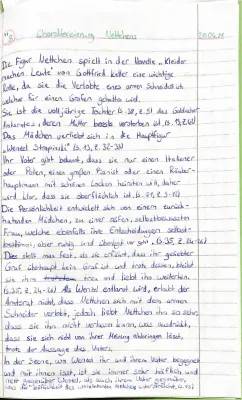 Charakterisierung Nettchens
Die Figur Nettchen spielt in der Novelle „Kleider
machen Leute" von Gottfried Keller eine wichtige
Rolle, da sie die Verlobte eines armen Schneiders ist,
welcher für einen Grafen gehalten wird.
Sie ist die volljährige Tochter des Goldacher
Amtsrates, deren Mutter bereits verstorben ist.
Das Mädchen verliebt sich in die Hauptfigur
„Wenzel Strapinski"
Ihr Vater gibt bekannt, dass sie nur einen Italiener
oder Polen, einen großen Pianist oder einen Räuber-
hauptmann mit schönen Locken heiraten will, daher
wird klar, dass sie oberflächlich ist.
Die Persönlichkeit entwickelt sich von einem zurück-
haltenden Mädchen, zu einer reifen, selbstbewussten
Frau, welche ebenfalls ihre Entscheidungen selbst-
bestimmt, aber ruhig und überlegt vor sich
Dies stellt man fest, als sie erfährt, dass ihr geliebter
Graf überhaupt kein Graf ist und trotz dessen, bleibt
sie ihm treu und liebt ihn weiterhin.
Als Wenzel entlarvt wird, erlaubt der
Amtsrat nicht, dass Nettchen sich mit dem armen
Schneider verlobt, jedoch liebt Nettchen ihn so sehr,
dass sie ihn nicht verlassen kann, was ausdrückt,
dass sie sich nicht von ihrer Meinung abbringen lässt,
trotz der Aussage des Vaters.
In der Szene, wo Wenzel ihr und ihrem Vater begegnet
und mit ihnen isst, ist sie immer sehr höflich und
nett gegenüber Wenzel, als auch ihrem Vater gegenüber,